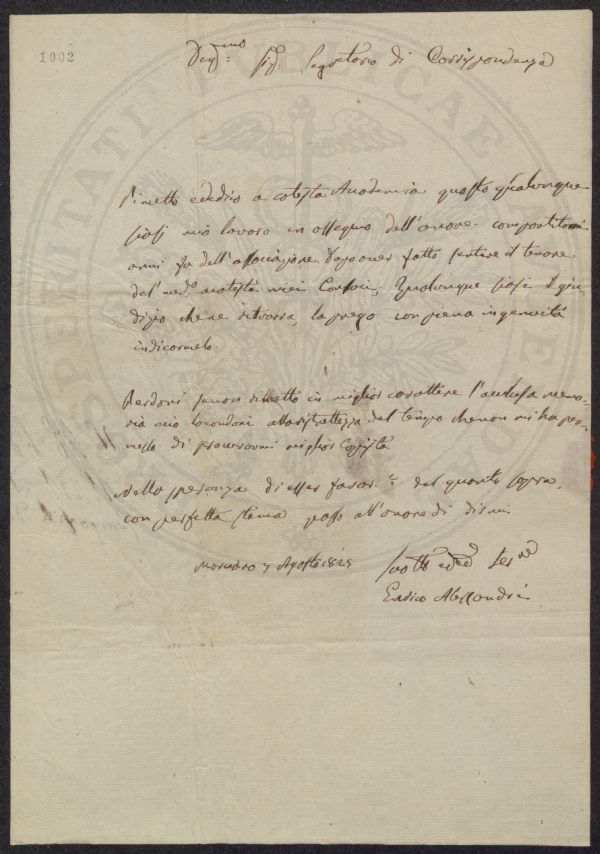 1002
Deg.mo Sig. Segretario di Corrispondenza
Rimetto e dedico a cotesta Accademia questo qualunque
siasi mio lavoro in ossequio dell'onore compartitomi
anni fa dell'associazione. Dopo aver fatto sentire il tenore
del med.o a cotesti miei Consoci, Qualunque siasi il giu-
dizio che ne ritrarrà, la prego con piena ingenuità
indicarmelo.
Perdoni se non rimetto in miglior carattere l'acclusa memo-
ria mia alla ristrettezza del tempo che non mi ha per-
messo di procurarmi miglior Copista
Nella speranza di esser favor.o del quanto sopra,
con perfetta stima passo all'onore di dirmi
7 Agosto 1825
Serre
Enrico Alessandri